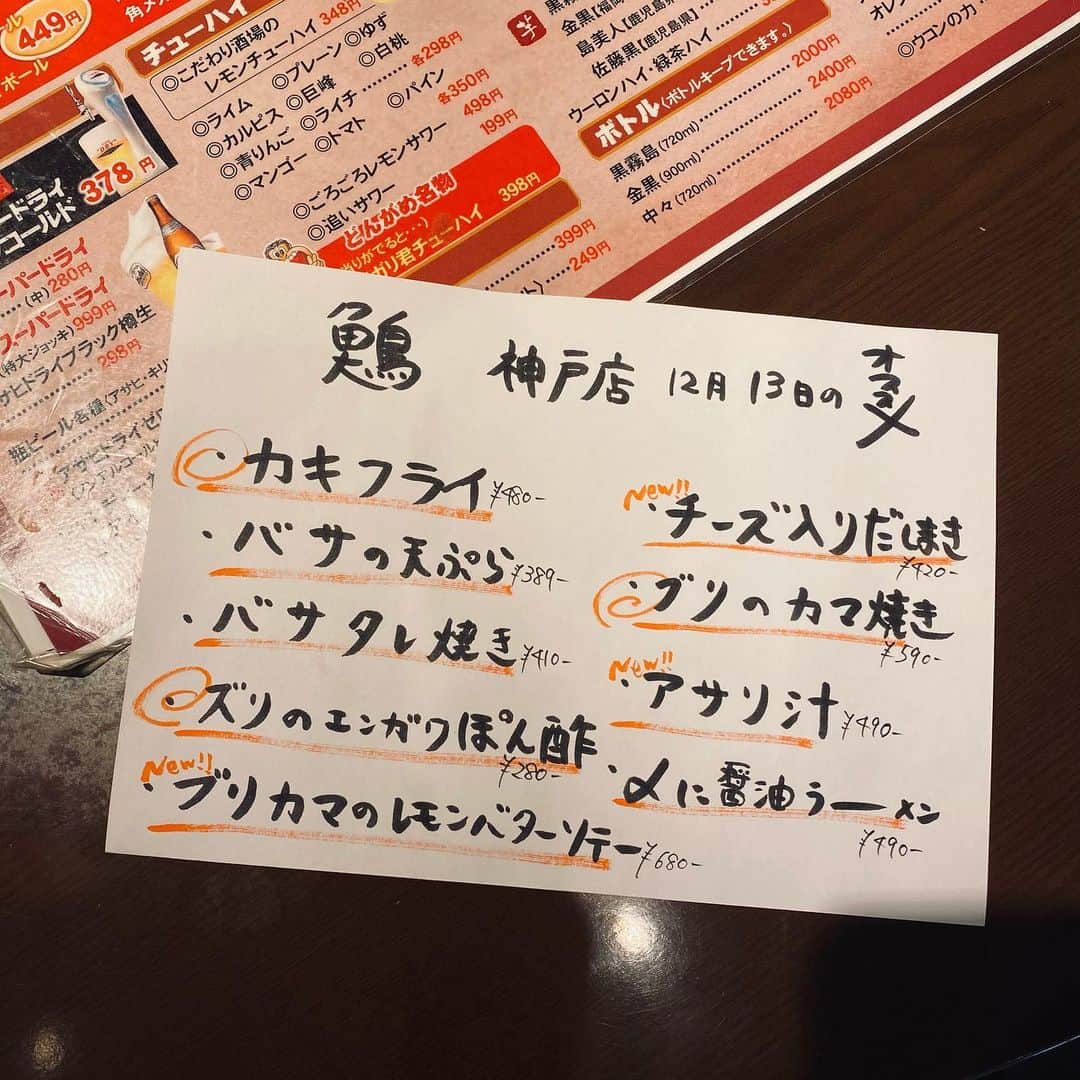 449円
ボール
チューハイ
348円
◎こだわり酒場の
レモンチューハイ
◎ライム
◎プレーン
◎ゆず
◎カルピス
◎巨峰
◎白桃
◎青りんご
◎ライチ
各298円
◎マンゴー
◎トマト
◎パイン
各350円
◎ごろごろレモンサワー
498円
◎追いサワー
199円
どんがめ名物
ガリ君チューハイ
398円
399円
249円
378円
ードライ
コールド
ーパードライ
(中)280円
スーパードライ
(特大ジョッキ)999円
サヒドライブラック樽生
298円
瓶ビール各種(アサヒ・キリ
アサヒドライゼロ
金黒【福岡
島美人【鹿児島県】
佐藤黒【鹿児島県】
ウーロンハイ・緑茶ハイ
ボトル(ボトルキープできます。)
黒霧島(720ml)
2000円
金黒(900ml)
2400円
中々(720ml)
2080円
◎ウコンのカ
神戸店 12月13日の オススメ
・カキフライ ¥480-
・バサの天ぷら ¥389-
・バサタレ焼き ¥410-
・ズリのエンガワぽん酢 ¥280-
New!!
・ブリカマのレモンバターソテー ¥680-
New!!
・チーズ入りだしまき ¥420-
・ブリのカマ焼き ¥590-
New!!
・アサリ汁 ¥490-
・〆に醤油ラーメン ¥490-